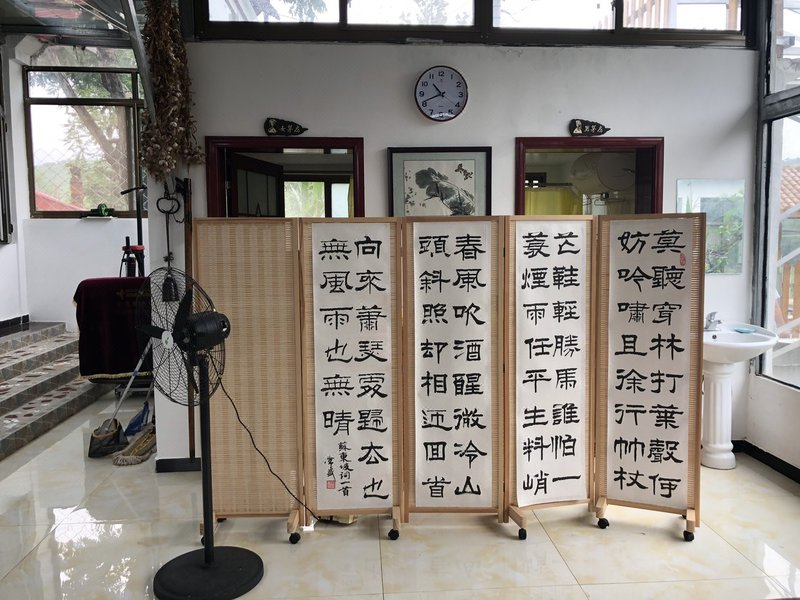 女茅房
男茅房
莫聽穿林打葉聲何
妨吟嘯且徐行竹杖
芒鞋輕勝馬誰怕一
蓑煙雨任平生料峭
春風吹酒醒微冷山
頭斜照却相迎回首
向來蕭瑟處歸去也
無風雨也無晴
蘇東坡詞一首